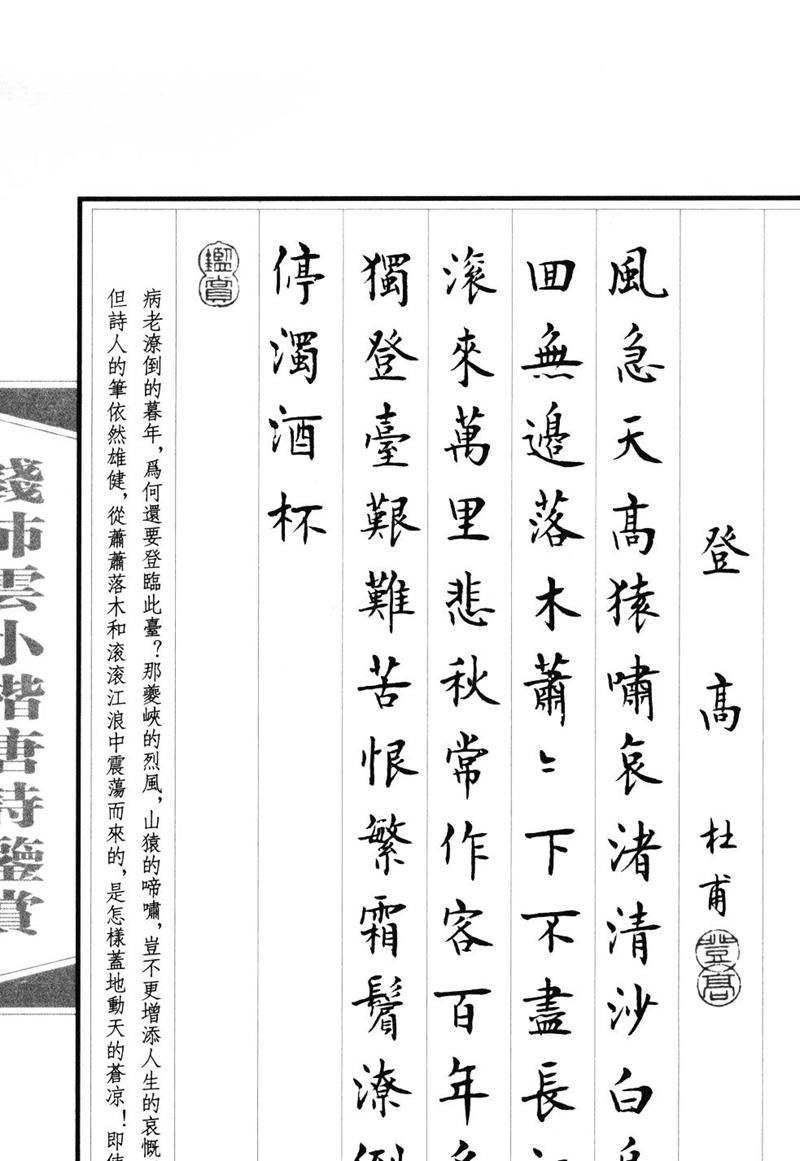 登高
杜甫
登高
風急天高猿嘯哀渚清沙白
回無邊落木蕭〻下不盡長
滾來萬里悲秋常作客百年
獨登臺艱難苦恨繁霜鬢潦
停濁酒杯
鑑賞
病老潦倒的暮年，爲何還要登臨此臺？那夔峽的烈風，山猿的啼嘯，豈不更增添人生的哀慨
但詩人的筆依然雄健，從蕭蕭落木和滚滚江浪中震蕩而來的，是怎樣蓋地動天的蒼凉！即使
錢沛雲小楷唐詩鑒賞